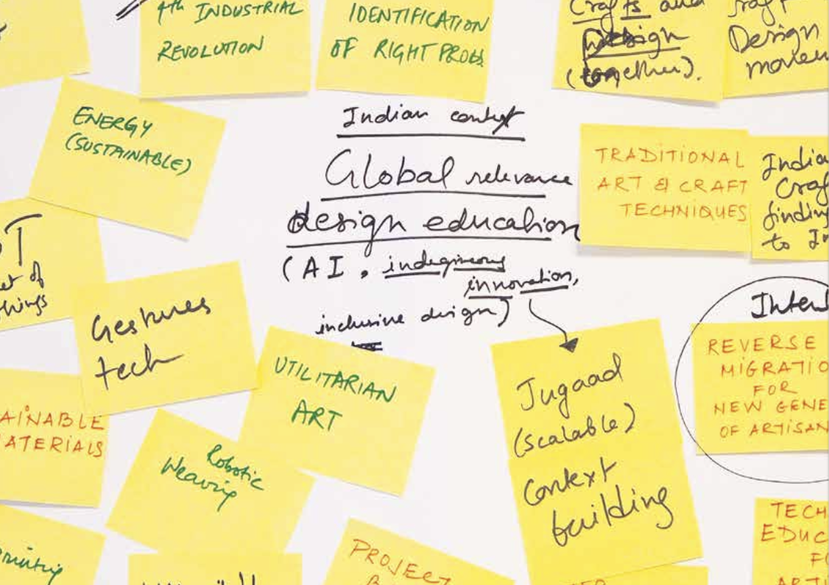 4th INDUSTRIAL
REVOLUTION
IDENTIFICATION
OF RIGHT PROBS
Crafts and
Design
(together).
Design
ENERGY
(SUSTAINABLE)
Indian context
Global relevance
design education
(AI, indegineous
innovation,
inclusive design)
TRADITIONAL
ART & CRAFT
TECHNIQUES
India
Craf
findin
to In
et of
hings
Gestures
tech
UTILITARIAN
ART
Jugaad
(scalable)
Context
building
Inter
REVERSE
MIGRATIO
FOR
NEW GENE
OF ARTISAN
AINABLE
ATERIALS
Robotic
Weaving
PROJECT
TECH
EDUC
F
ART